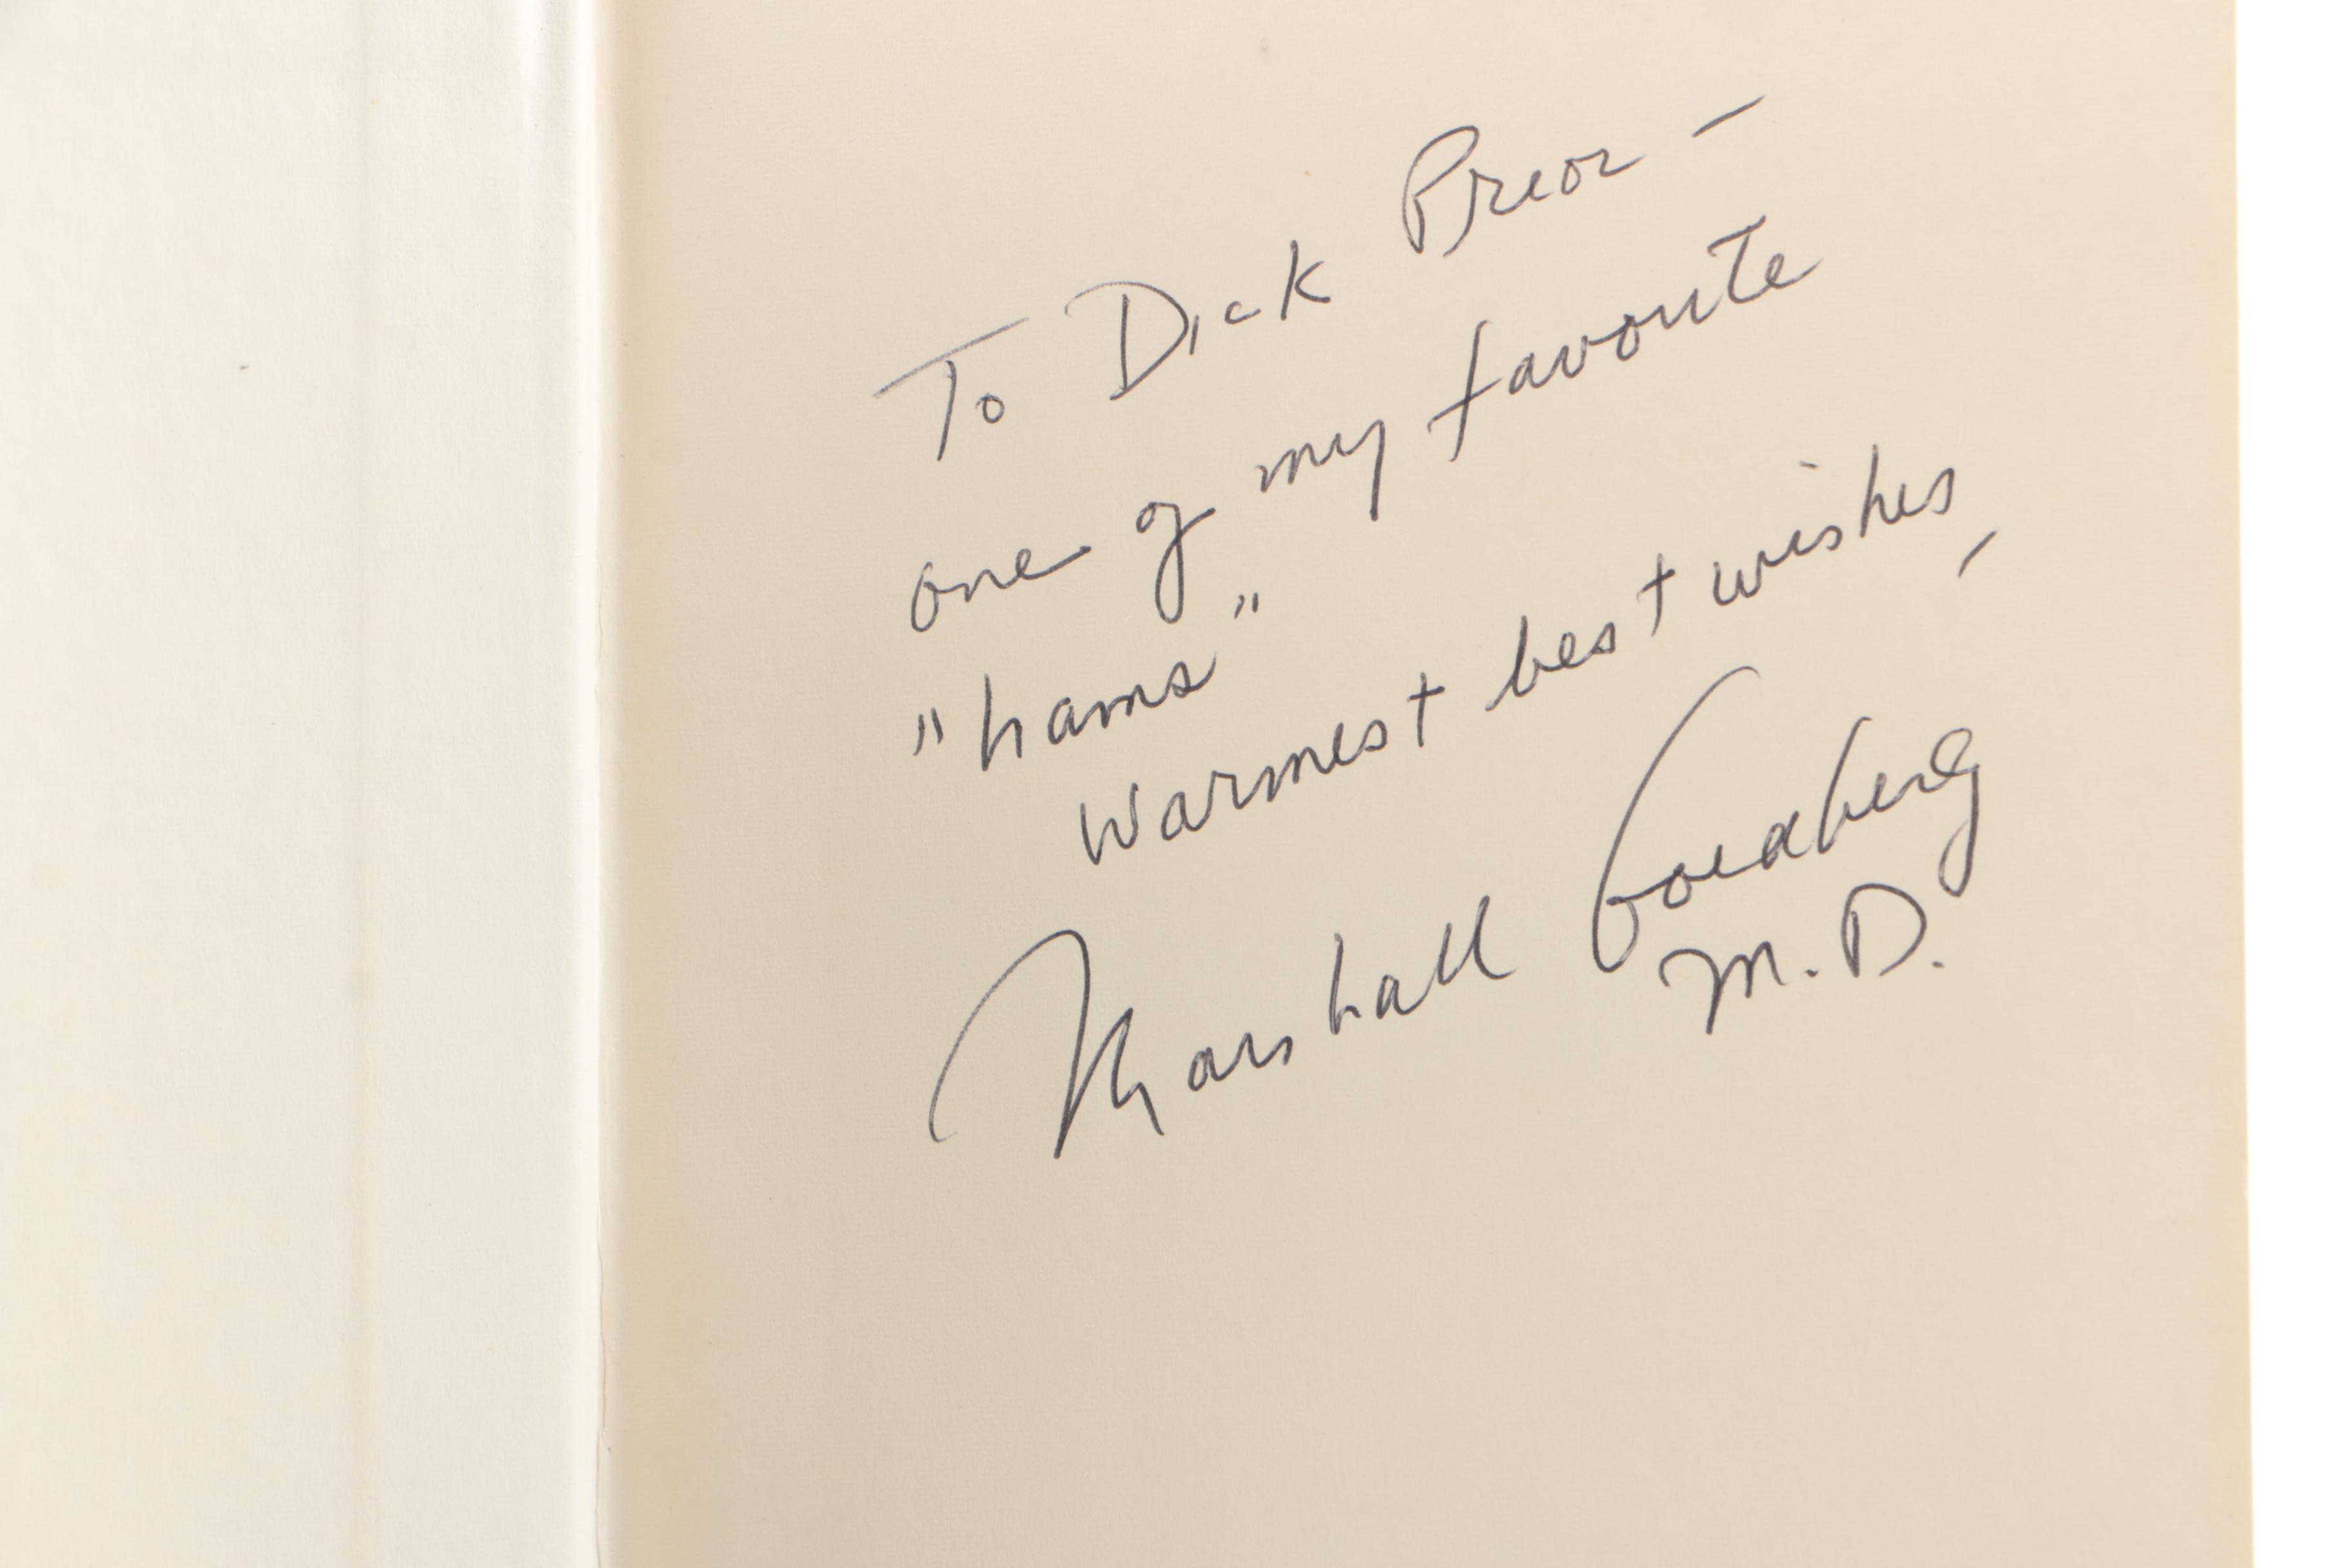 To Dick Prior -
one of my favorite
"hams"
Warmest best wishes,
Marshall Goldberg
M.D.